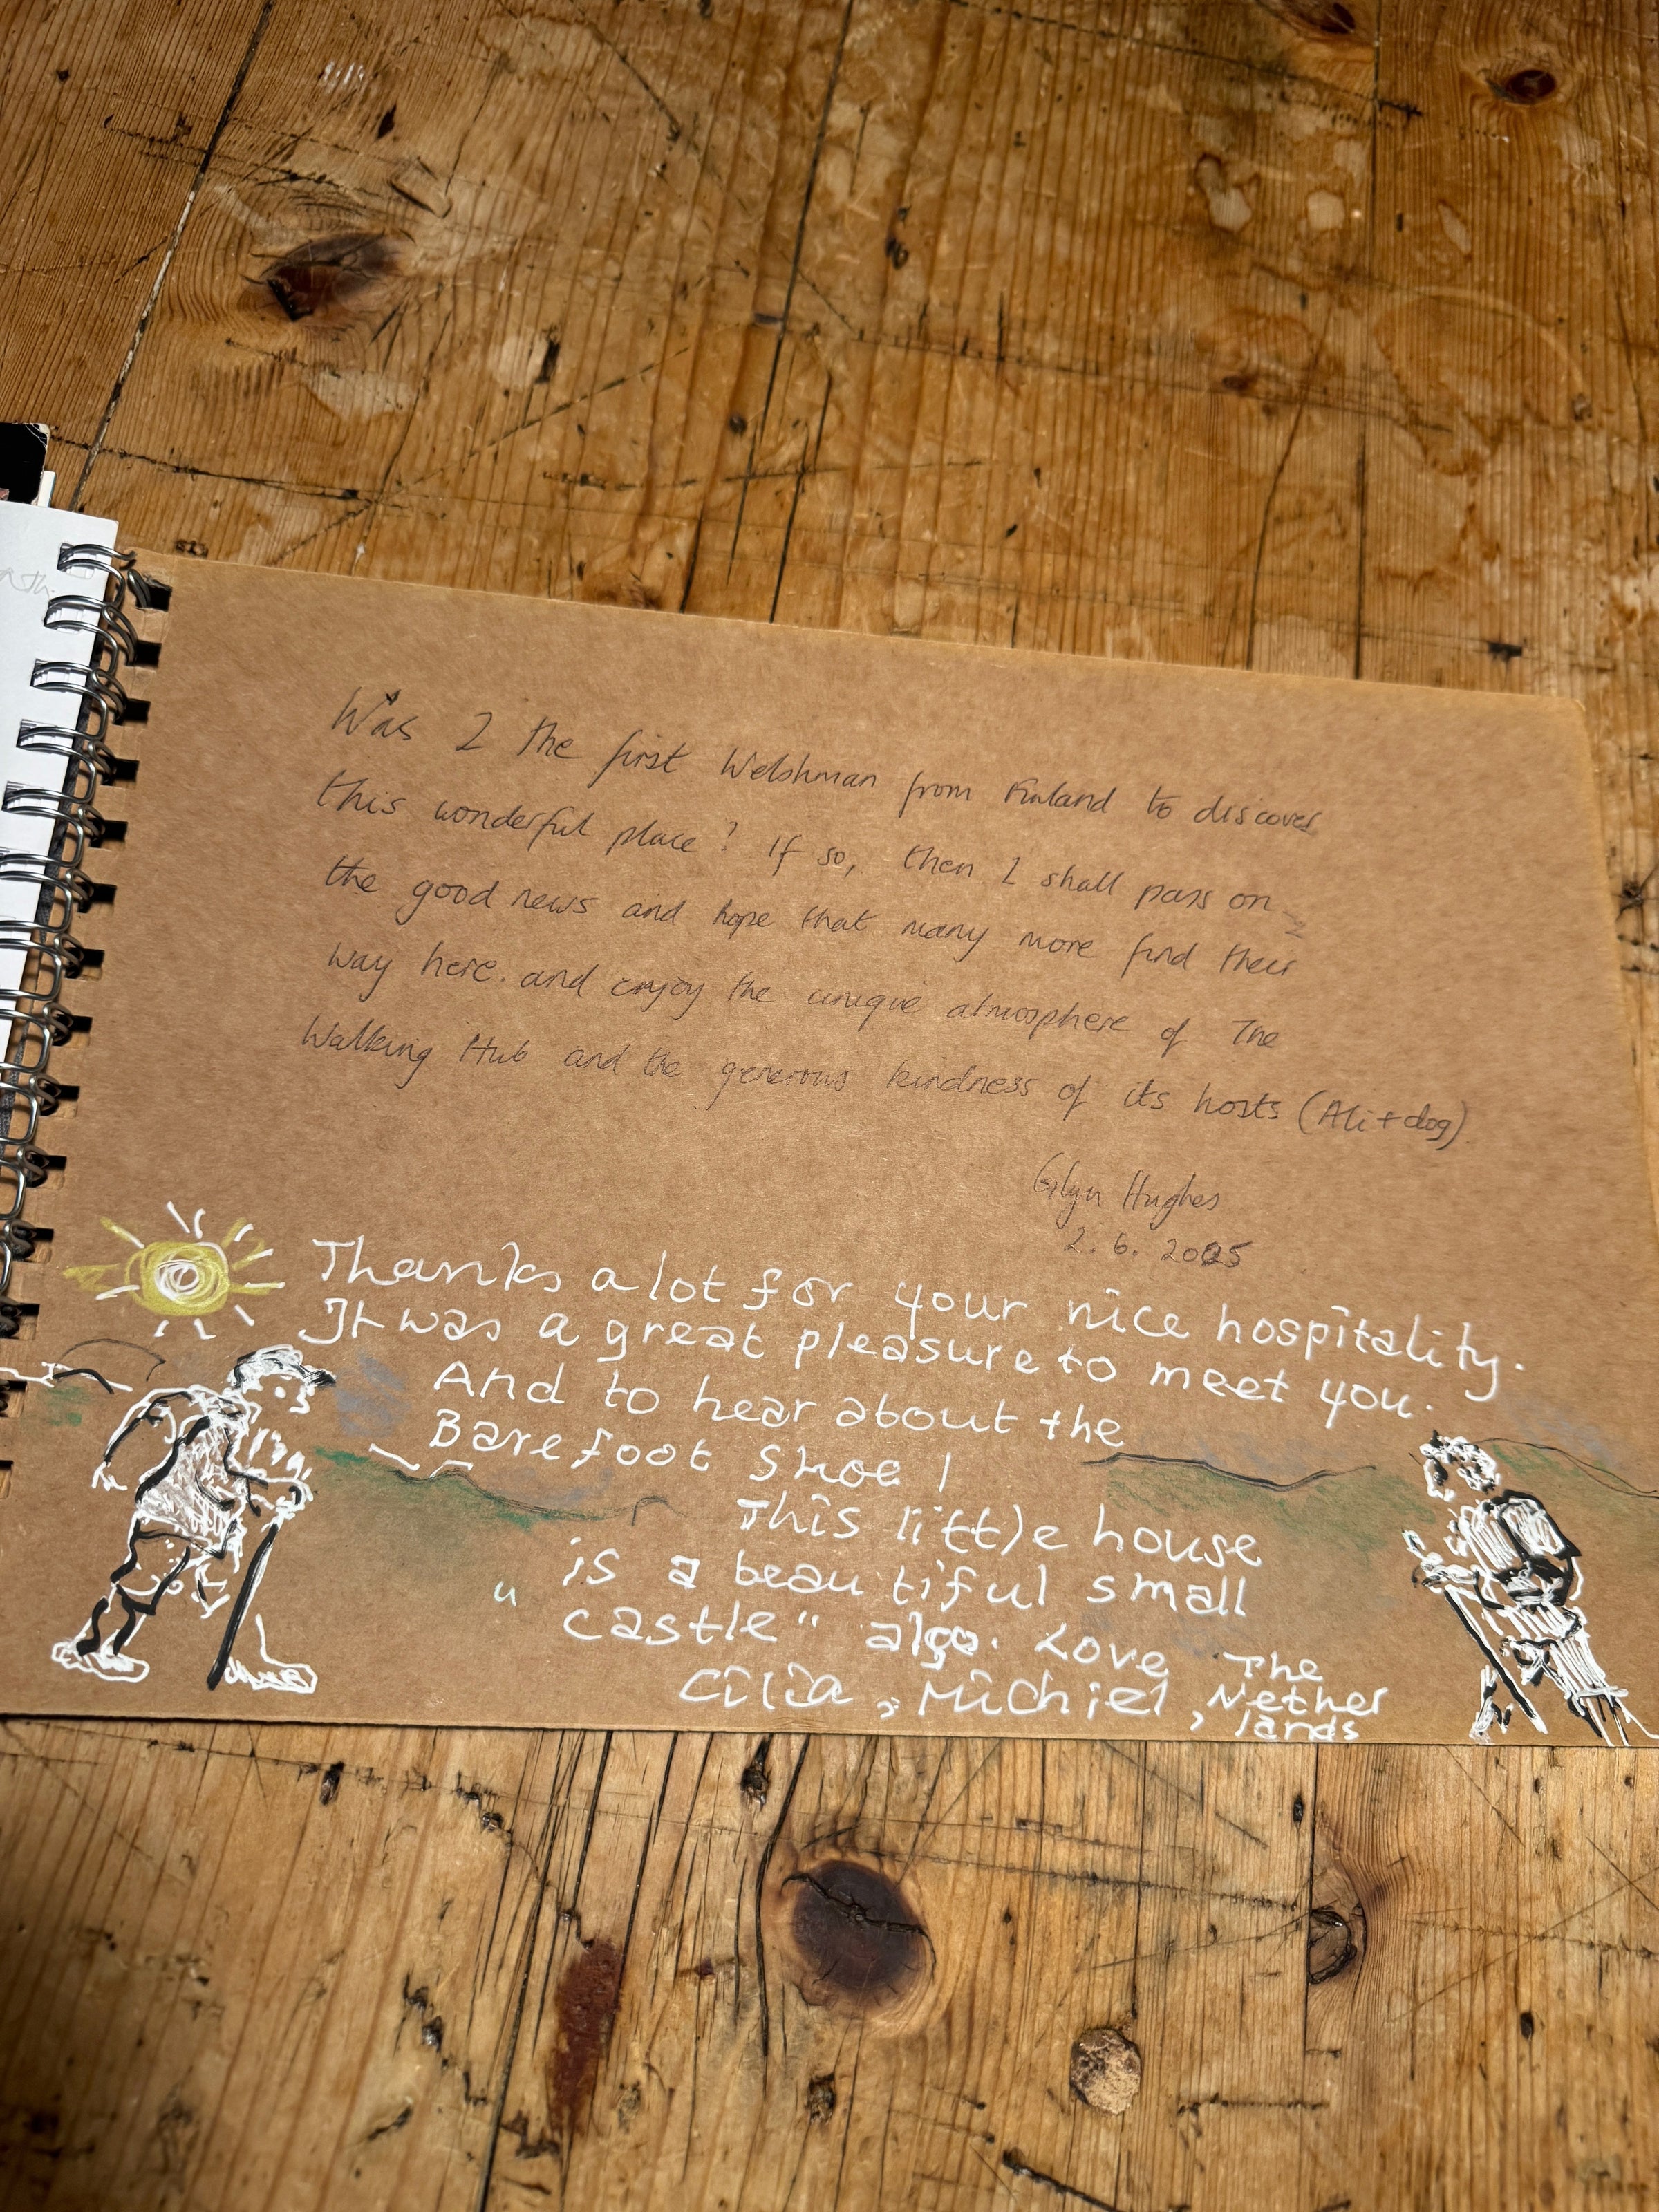 Was I the first Welshman from Finland to discover
this wonderful place? If so, then I shall pass on
the good news and hope that many more find their
way here. and enjoy the unique atmosphere of The
Walking Hub and the generous kindness of its hosts (Ali + dog)
Glyn Hughes
2.6.2025
Thanks a lot for your nice hospitality.
It was a great pleasure to meet you.
And to hear about the
Barefoot shoe!
This little house
is a beautiful small
"castle" also. Love
Cilia, Michiel, The
Nether
lands